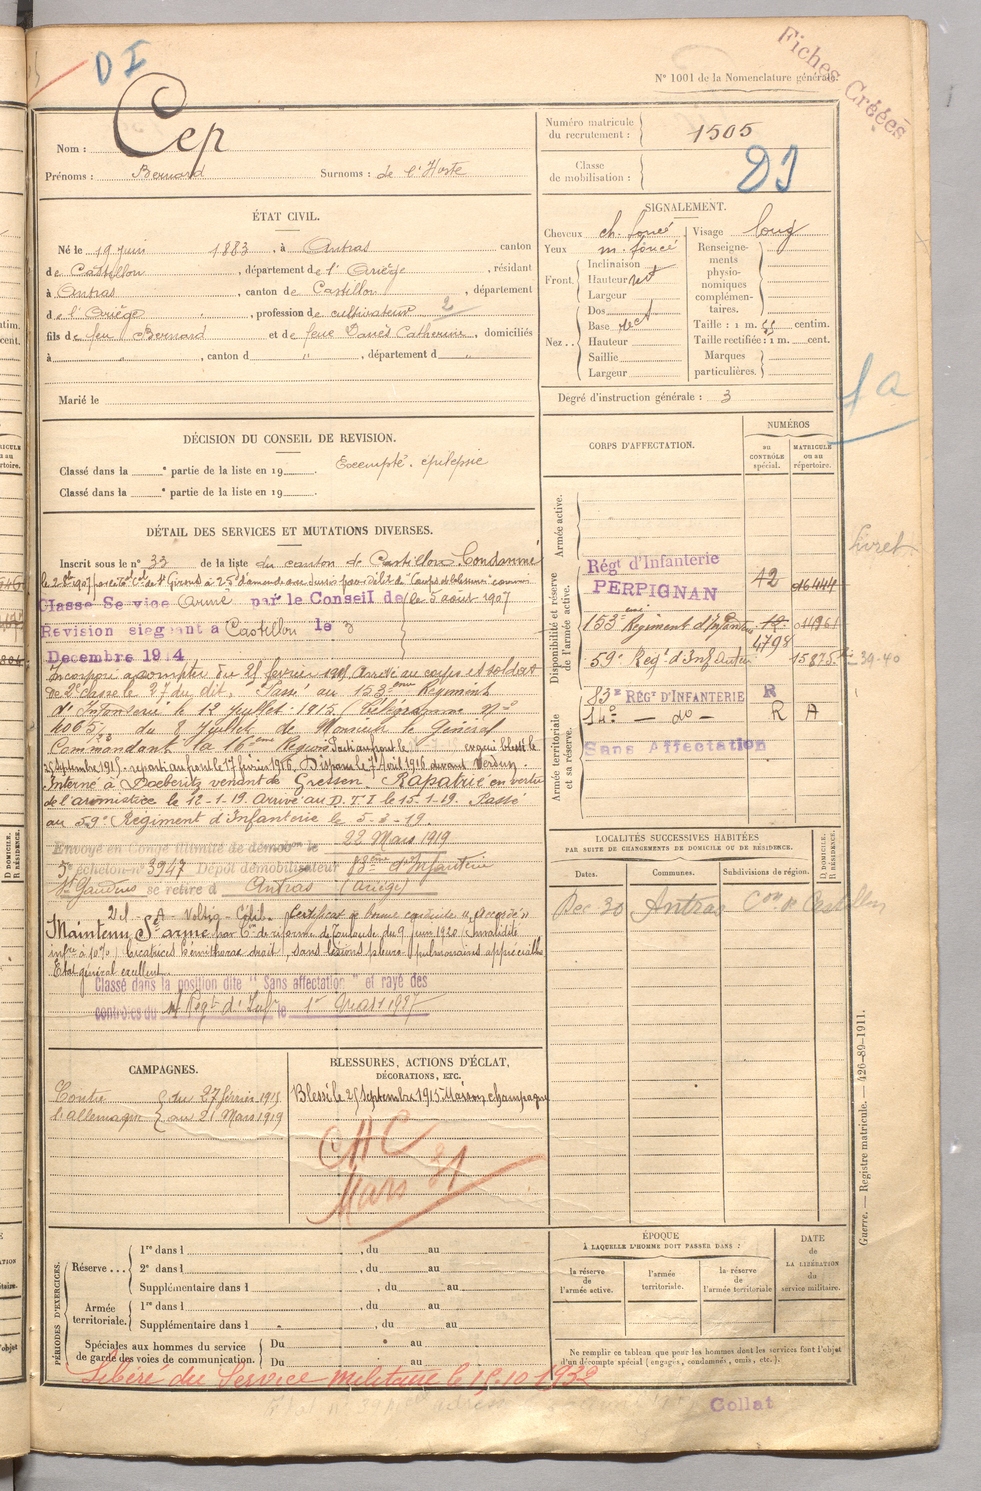 D I
Fiches Créées
N° 1001 de la Nomenclature générale.
Nom : Cep
Prénoms : Bernard Surnoms : de l'Hoste
Numéro matricule du recrutement : 1505
Classe de mobilisation :
ÉTAT CIVIL.
Né le 19 juin 1883, à Antras canton
de Castillon, département de l'Ariège, résidant
à Antras, canton de Castillon, département
de l'Ariège, profession de cultivateur 2
fils de feu Bernard et de feue Catherine, domiciliés
à " , canton d " , département d "
Marié le
SIGNALEMENT.
Cheveux ch. foncé
Yeux m. foncé
Front Inclinaison
Hauteur
Largeur
Nez Dos
Base rect
Hauteur
Saillie
Largeur
Visage long
Renseignements physionomiques complémentaires.
Taille : 1 m. centim.
Taille rectifiée : 1 m. cent.
Marques particulières.
Degré d'instruction générale : 3
DÉCISION DU CONSEIL DE REVISION.
Classé dans la ° partie de la liste en 19 Exempté. épilepsie
Classé dans la ° partie de la liste en 19
DÉTAIL DES SERVICES ET MUTATIONS DIVERSES.
Inscrit sous le n° 33 de la liste du canton de Castillon. Condamné
le 5 août 1907
Classe Service Armé par le Conseil de
Revision siegeant à Castillon le 3
Decembre 1914
Incorporé à compter du février Arrivé au corps et soldat
de 2e classe le 27 du dit. Passé au 153ème Régiment
d'Infanterie le 12 juillet 1915. Télégramme n°
4065 du 8 juillet de Monsieur le Général
Commandant la 16ème Région Parti au front le évacué blessé le
25 septembre 1915. reparti au front le 17 février 1916. Disparu le 7 Avril 1916 devant Verdun.
Interné à Doeberitz venant de Giessen. Rapatrié en vertu
de l'armistice le 12-1-19. Arrivé au D.T.I le 15-1-19. Passé
au 59e Régiment d'Infanterie le 5-3-19.
Envoyé en congé illimité de démobon le 22 Mars 1919
5e échelon n° 3947 Dépôt démobilisateur 83ème d'Infanterie
St Gaudens se retire à Antras (Ariège)
Certificat de bonne conduite « Accordé »
Maintenu St armé par Con de réforme de Toulouse du 9 juin 1920 Invalidité
infre à 10% Cicatrices hémithorax droit, sans lésions pleuro-pulmonaires appréciables
Etat général excellent.
Classé dans la position dite " Sans affectation " et rayé des
contrôles du Regt d'Infie le 1er Mars 1927
CORPS D'AFFECTATION.
NUMÉROS
au CONTRÔLE spécial.
MATRICULE ou au répertoire.
Armée active.
Disponibilité et réserve de l'armée active.
Régt d'Infanterie
PERPIGNAN 12
153eme Régiment d'Infanterie
4798
59e Regt d'Infanterie 15875
39-40
Armée territoriale et sa réserve.
83e RÉGt D'INFANTERIE R
14e — do — R A
Sans Affectation
livret
LOCALITÉS SUCCESSIVES HABITÉES
PAR SUITE DE CHANGEMENTS DE DOMICILE OU DE RÉSIDENCE.
Dates. Communes. Subdivisions de région. D. DOMICILE. R. RÉSIDENCE.
Dec 30 Antras Con de Castillon
CAMPAGNES.
Contre l'Allemagne
du 27 février 1915
au 21 Mars 1919
BLESSURES, ACTIONS D'ÉCLAT,
DÉCORATIONS, ETC.
Blessé le 25 Septembre 1915 Maison champagne
CAC
Mars 31
PÉRIODES D'EXERCICES.
Réserve ... 1re dans l , du au
2e dans l , du au
Supplémentaire dans l , du au
Armée territoriale. 1re dans l , du au
Supplémentaire dans l , du au
Spéciales aux hommes du service de garde des voies de communication. Du au
Du au
ÉPOQUE
À LAQUELLE L'HOMME DOIT PASSER DANS :
la réserve de l'armée active.
l'armée territoriale.
la réserve de l'armée territoriale
DATE de LA LIBÉRATION du service militaire.
Ne remplir ce tableau que pour les hommes dont les services font l'objet
d'un décompte spécial (engagés, condamnés, omis, etc.).
Libéré du Service militaire le 15-10 1932
Collat
Guerre. — Registre matricule. — 426-89-1911.